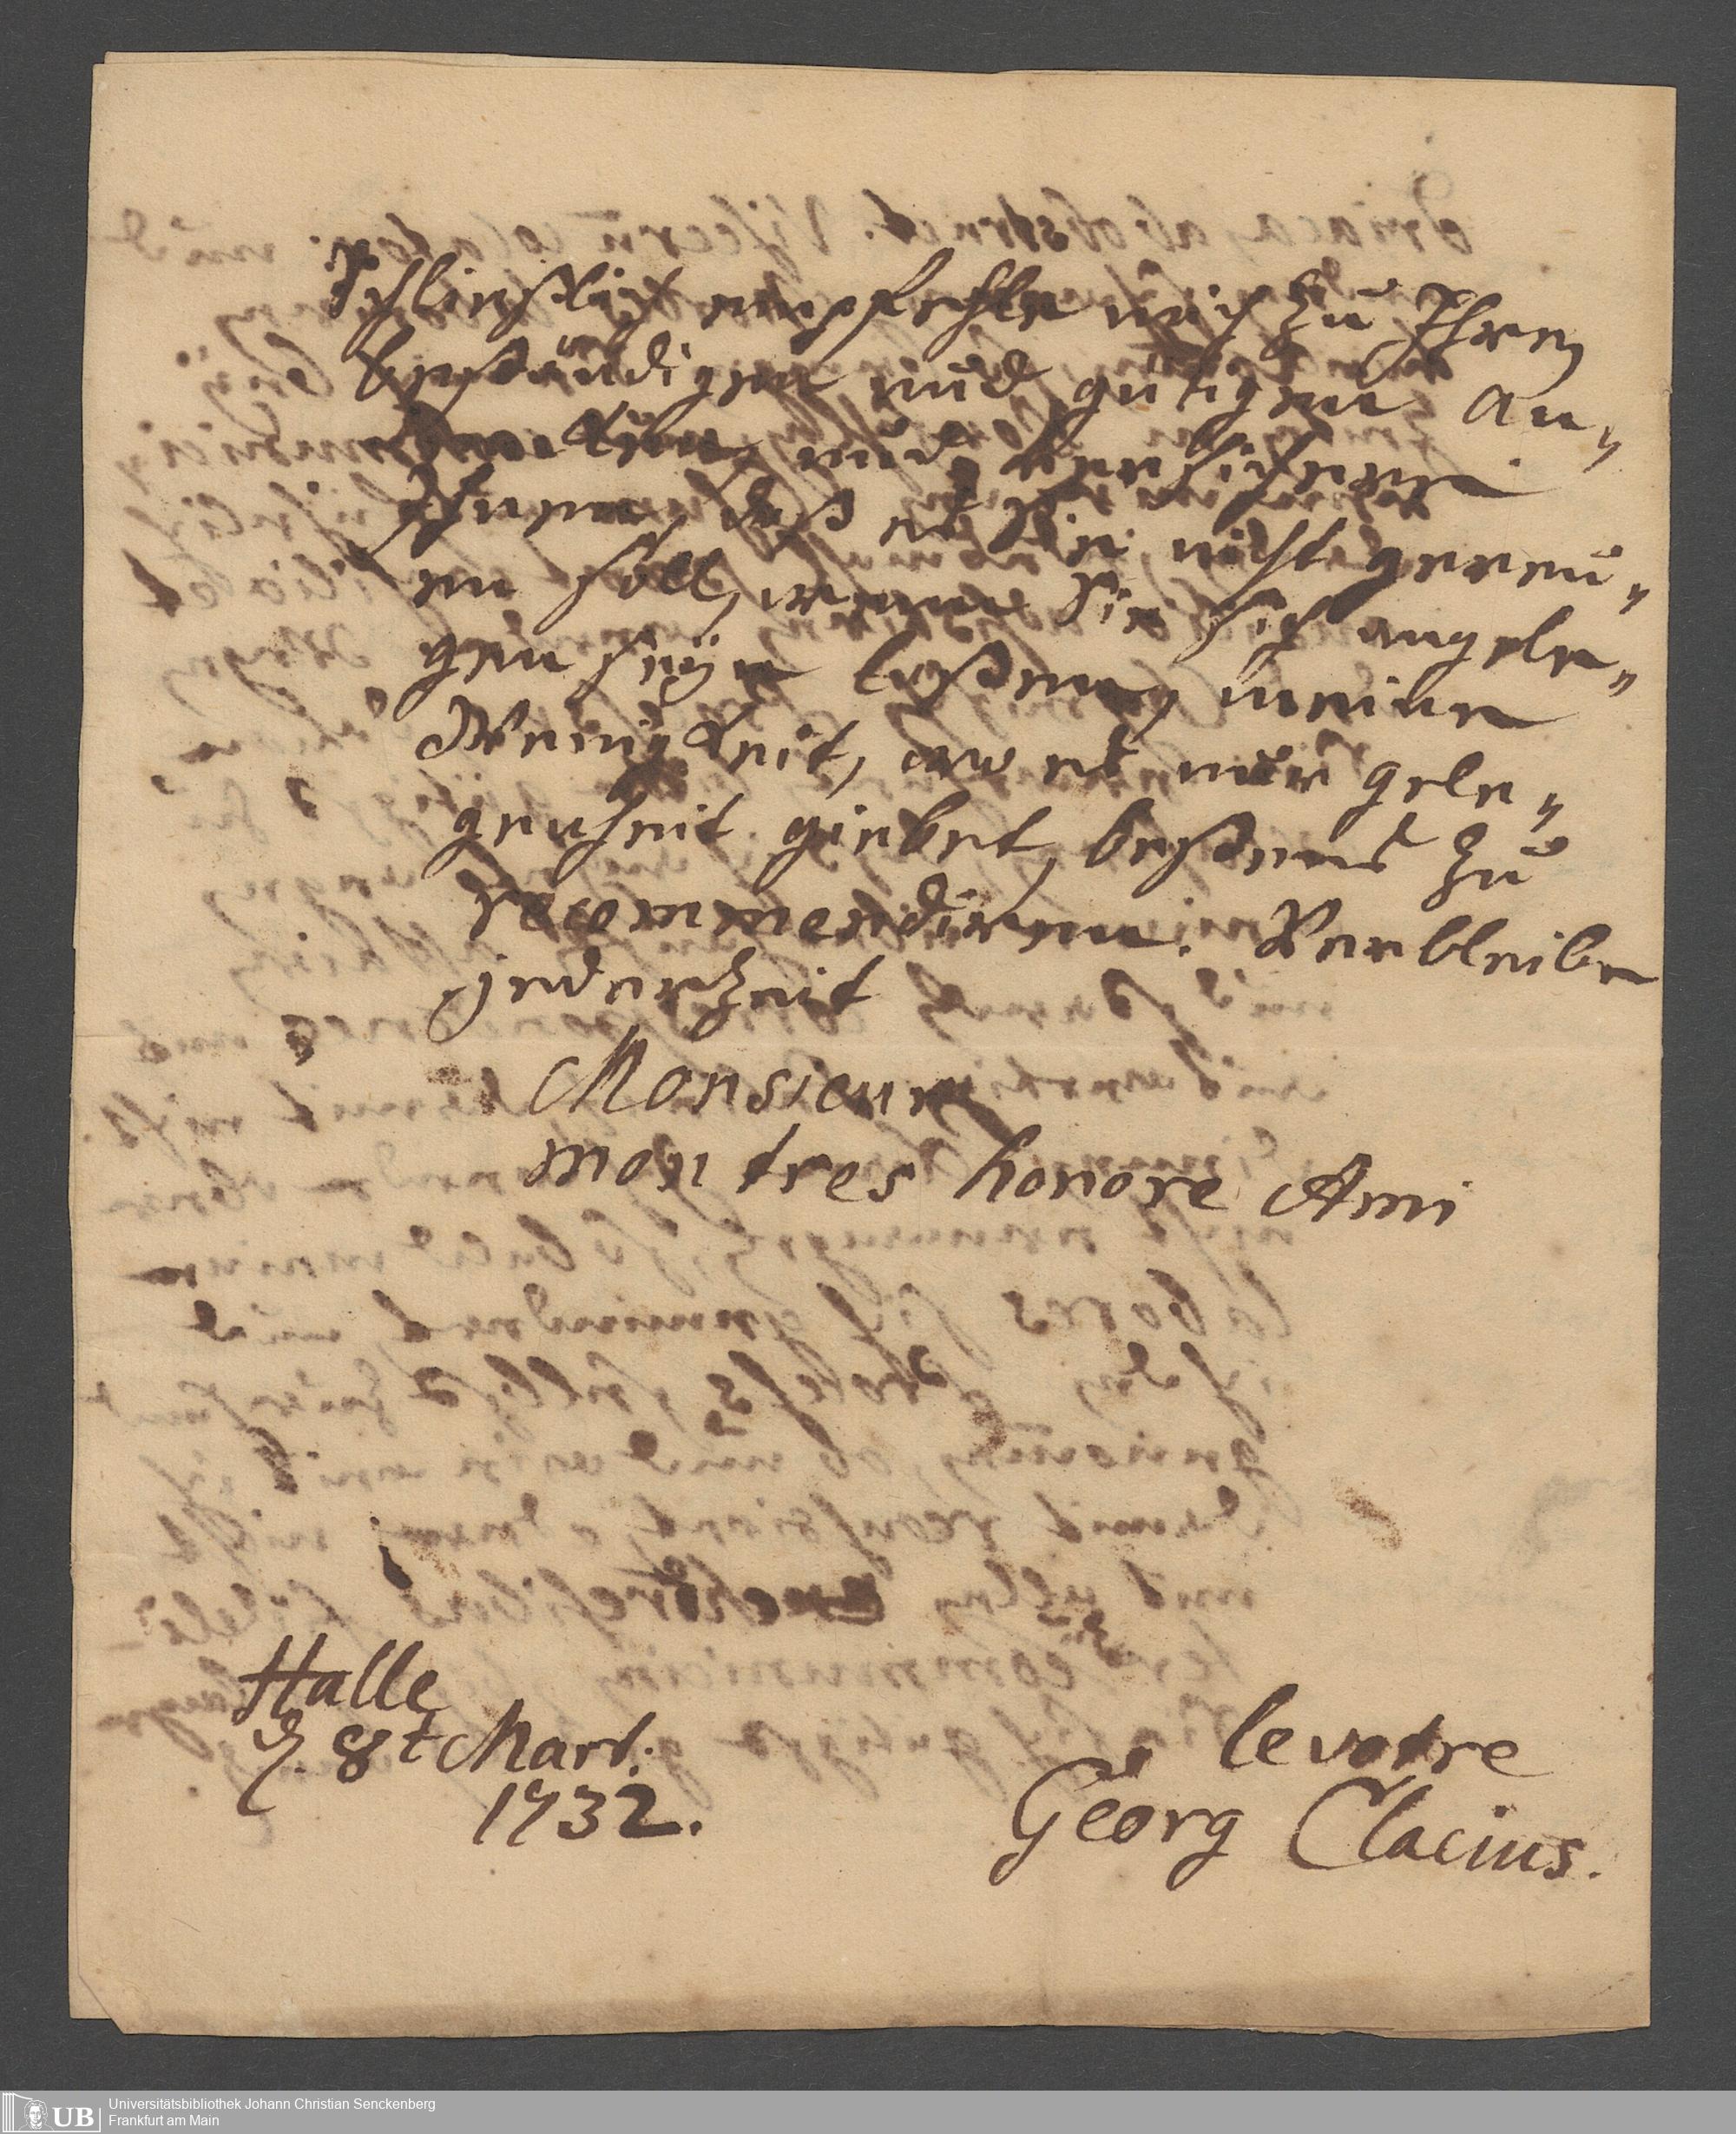 Schließlich empfehle mich zu Ihren
beständigen und gütigem An„
dencken, und versichere
Ihnen, daß es Sie nicht gereu„
en soll, wenn Sie sich angele„
gen seÿn laßen, meine
Wenigkeit, wo es nur gele„
genheit giebet, bestens zu
recommendiren. Verbleibe
jederzeit
Monsieur
mon tres honore Ami
Halle
d. 8t Mart.
1732.
le votre
Georg Clacius.
Universitätsbibliothek Johann Christian Senckenberg
Frankfurt am Main
UB